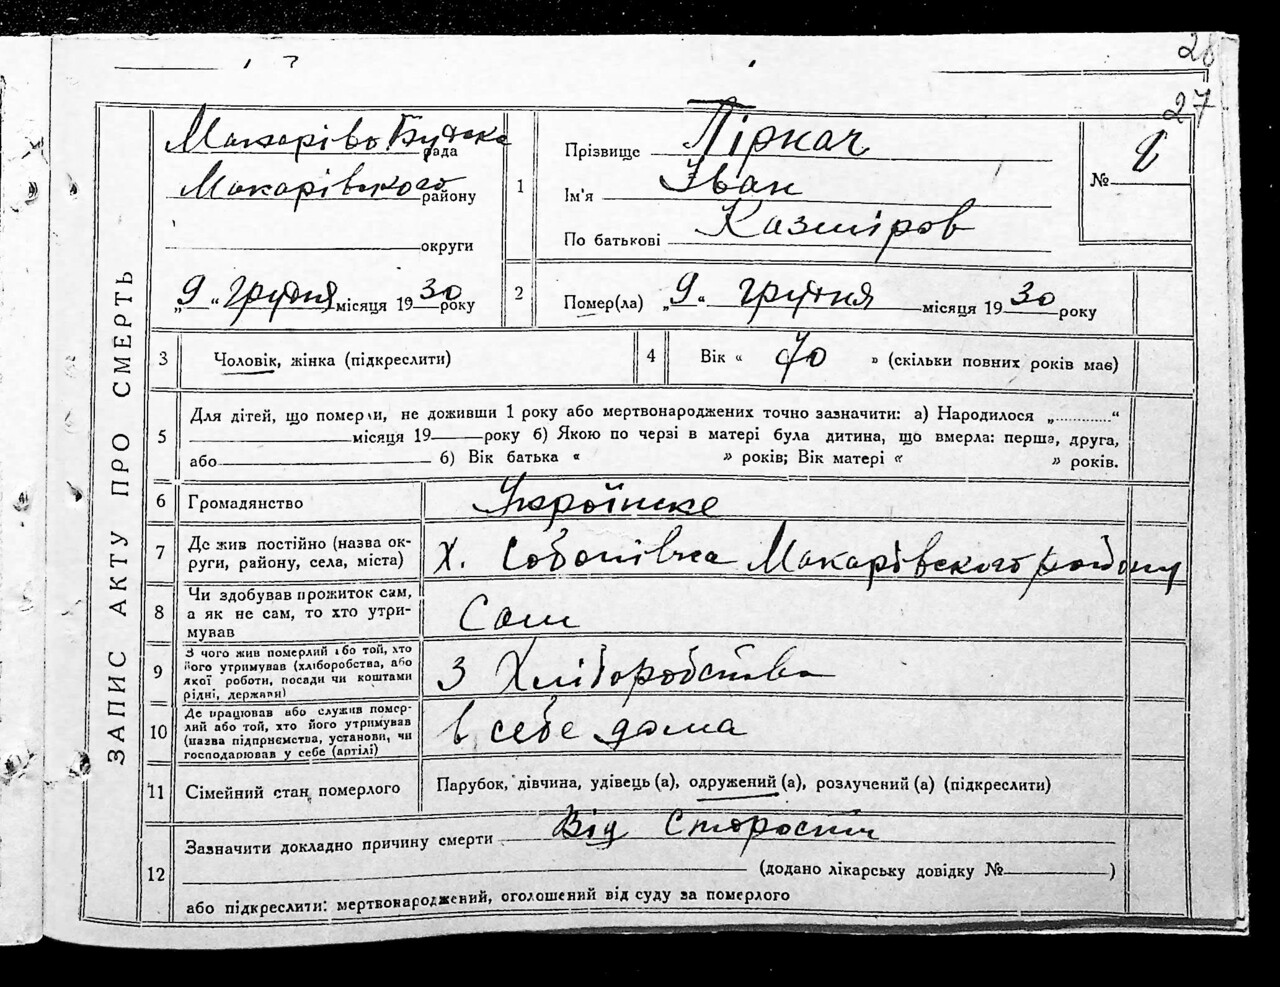 28
27
ЗАПИС АКТУ ПРО СМЕРТЬ
Макаріво Будська рада
Макарівского району
округи
„9“ грудня місяця 1930 року
1
Прізвище Пірнач
Ім'я Іван
По батькові Казміров
№ 8
2
Помер(ла) „9“ грудня місяця 1930 року
3
Чоловік, жінка (підкреслити)
4
Вік « 70 » (скільки повних років має)
5
Для дітей, що померли, не доживши 1 року або мертвонароджених точно зазначити: а) Народилося „..........“
місяця 19 року б) Якою по черзі в матері була дитина, що вмерла: перша, друга,
або б) Вік батька « » років; Вік матері « » років.
6
Громадянство
Українське
7
Де жив постійно (назва ок-
руги, району, села, міста)
х. Соболівка Макарівского району
8
Чи здобував прожиток сам,
а як не сам, то хто утри-
мував
Сам
9
З чого жив померлий або той, хто
його утримував (хліборобства, або
якої роботи, посади чи коштами
рідні, держави)
З Хліборобства
10
Де працював або служив помер-
лий або той, хто його утримував
(назва підприємства, установи, чи
господарював у себе (артілі)
в себе дома
11
Сімейний стан померлого
Парубок, дівчина, удівець (а), одружений (а), розлучений (а) (підкреслити)
12
Зазначити докладно причину смерти Від Старости
(додано лікарську довідку № )
або підкреслити: мертвонароджений, оголошений від суду за померлого